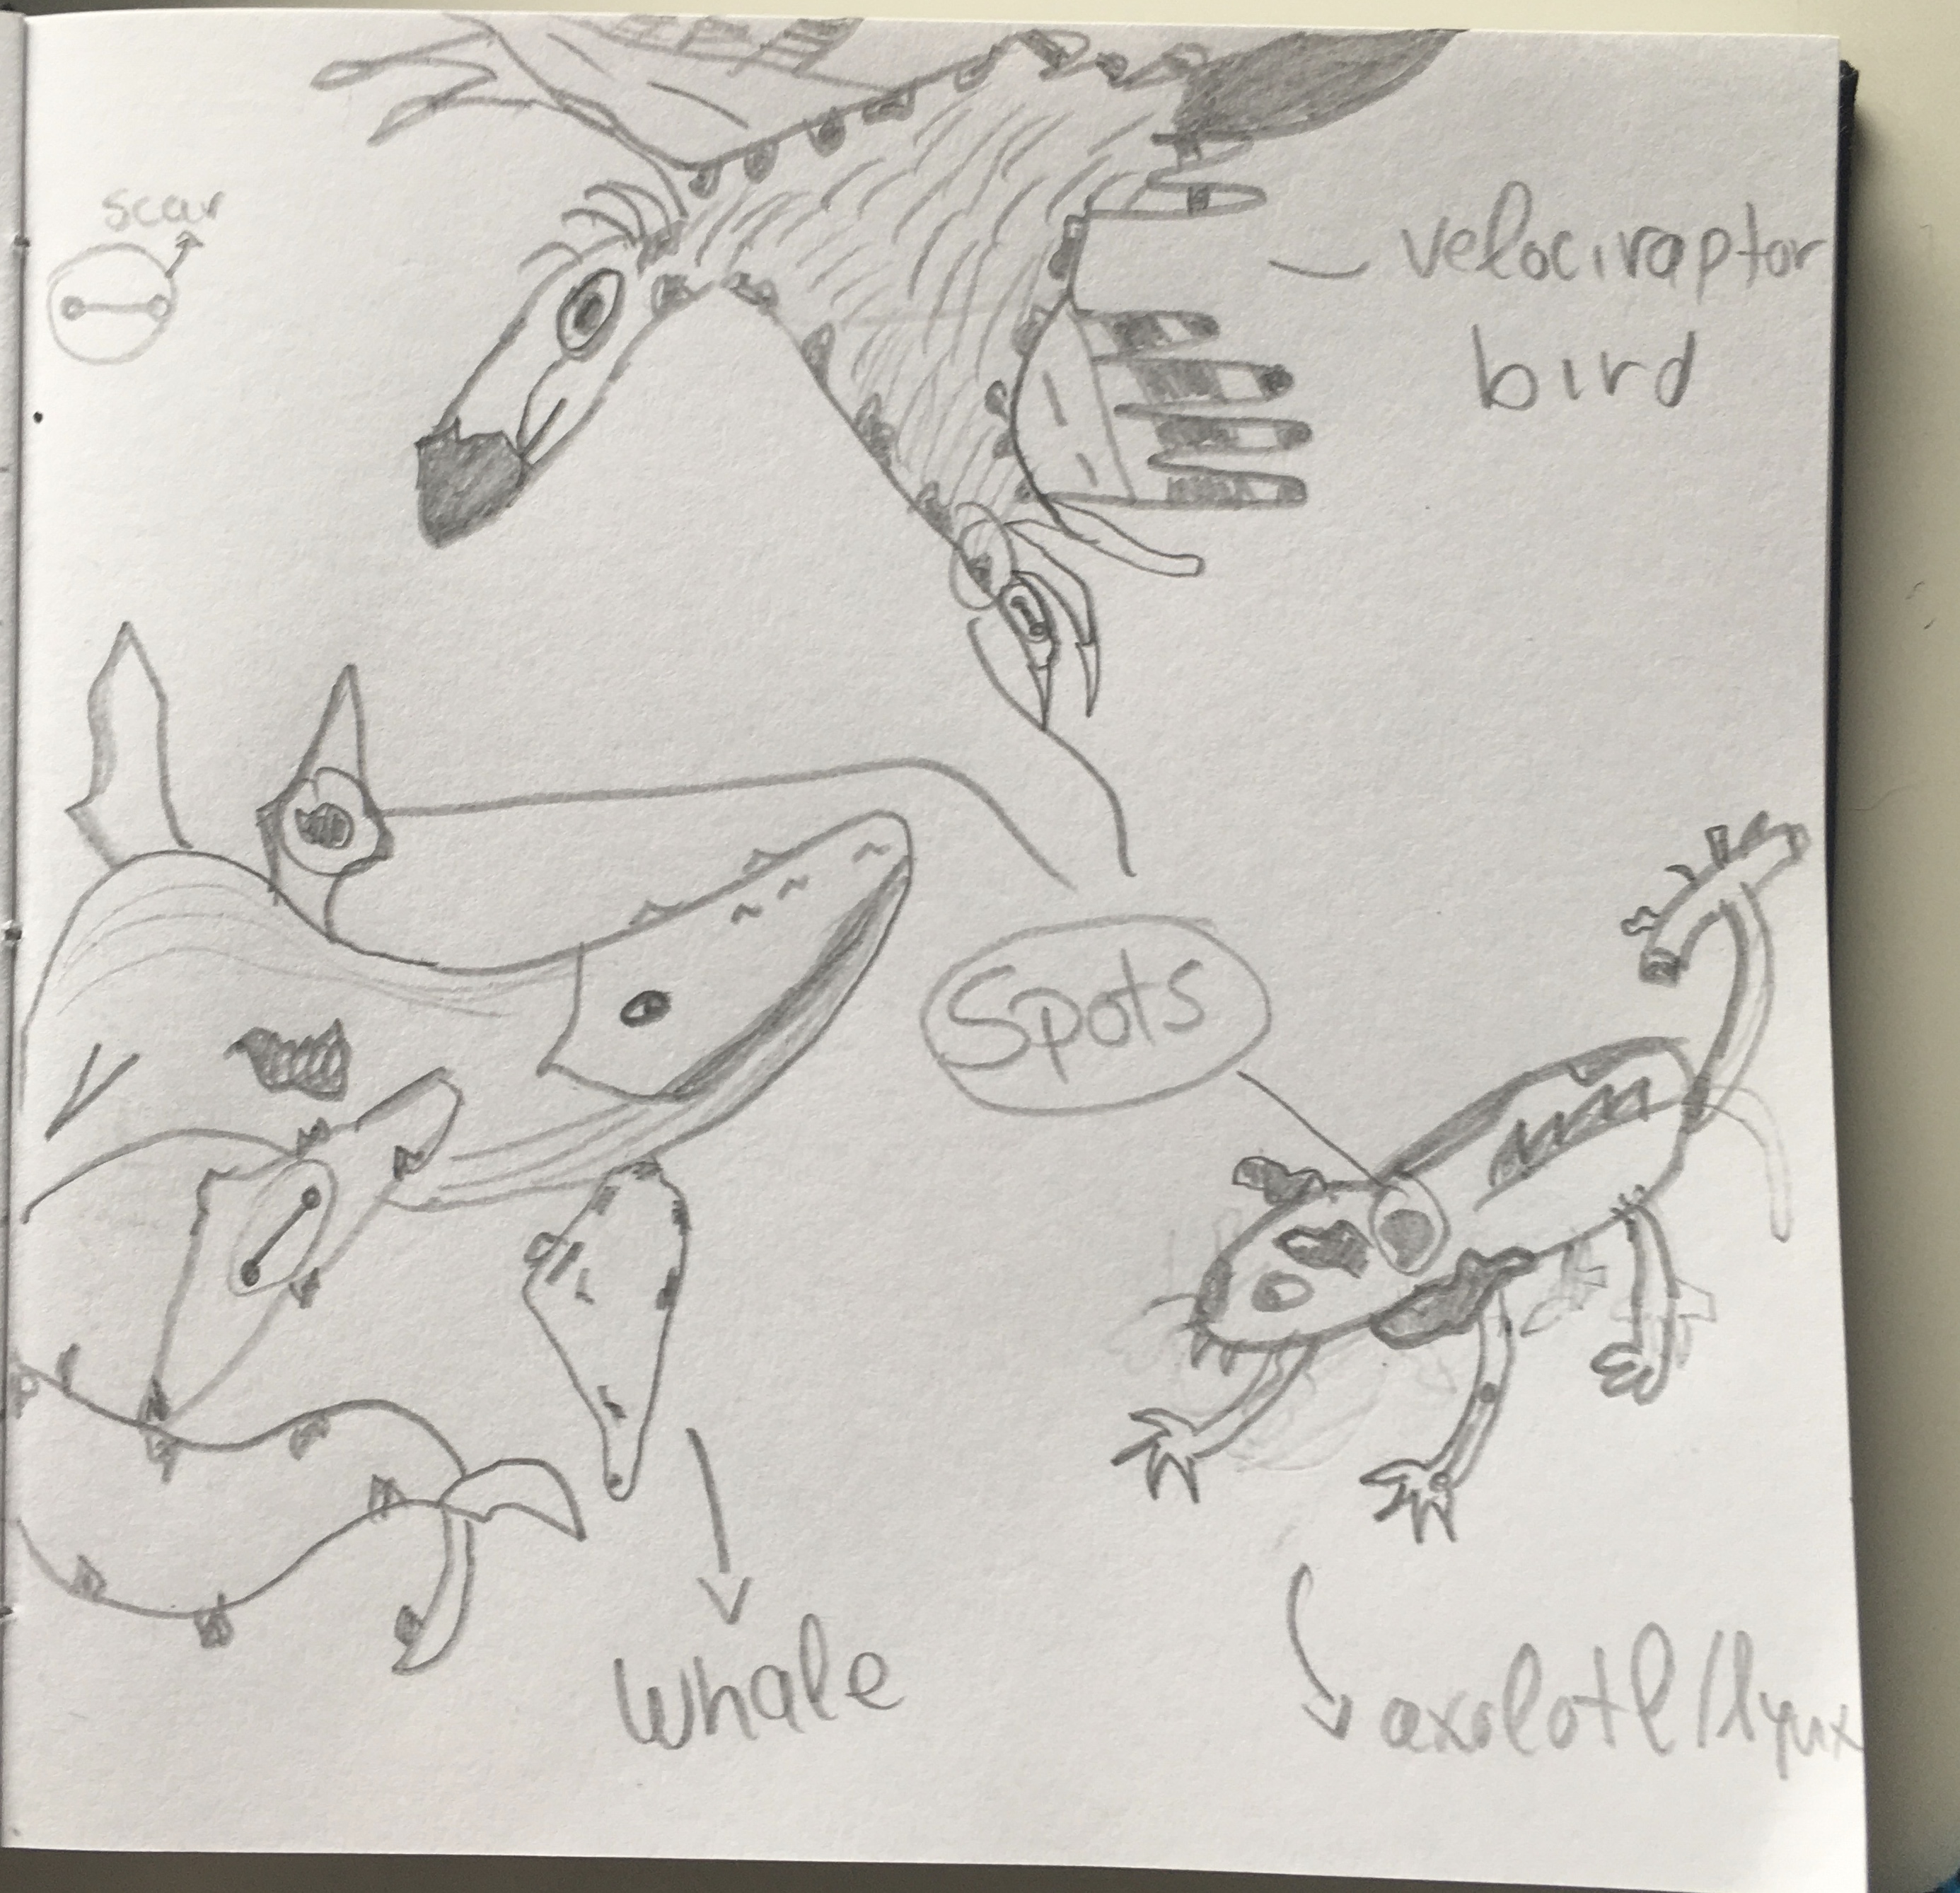 scar
velociraptor
bird
Spots
Whale
axolotl/lynx